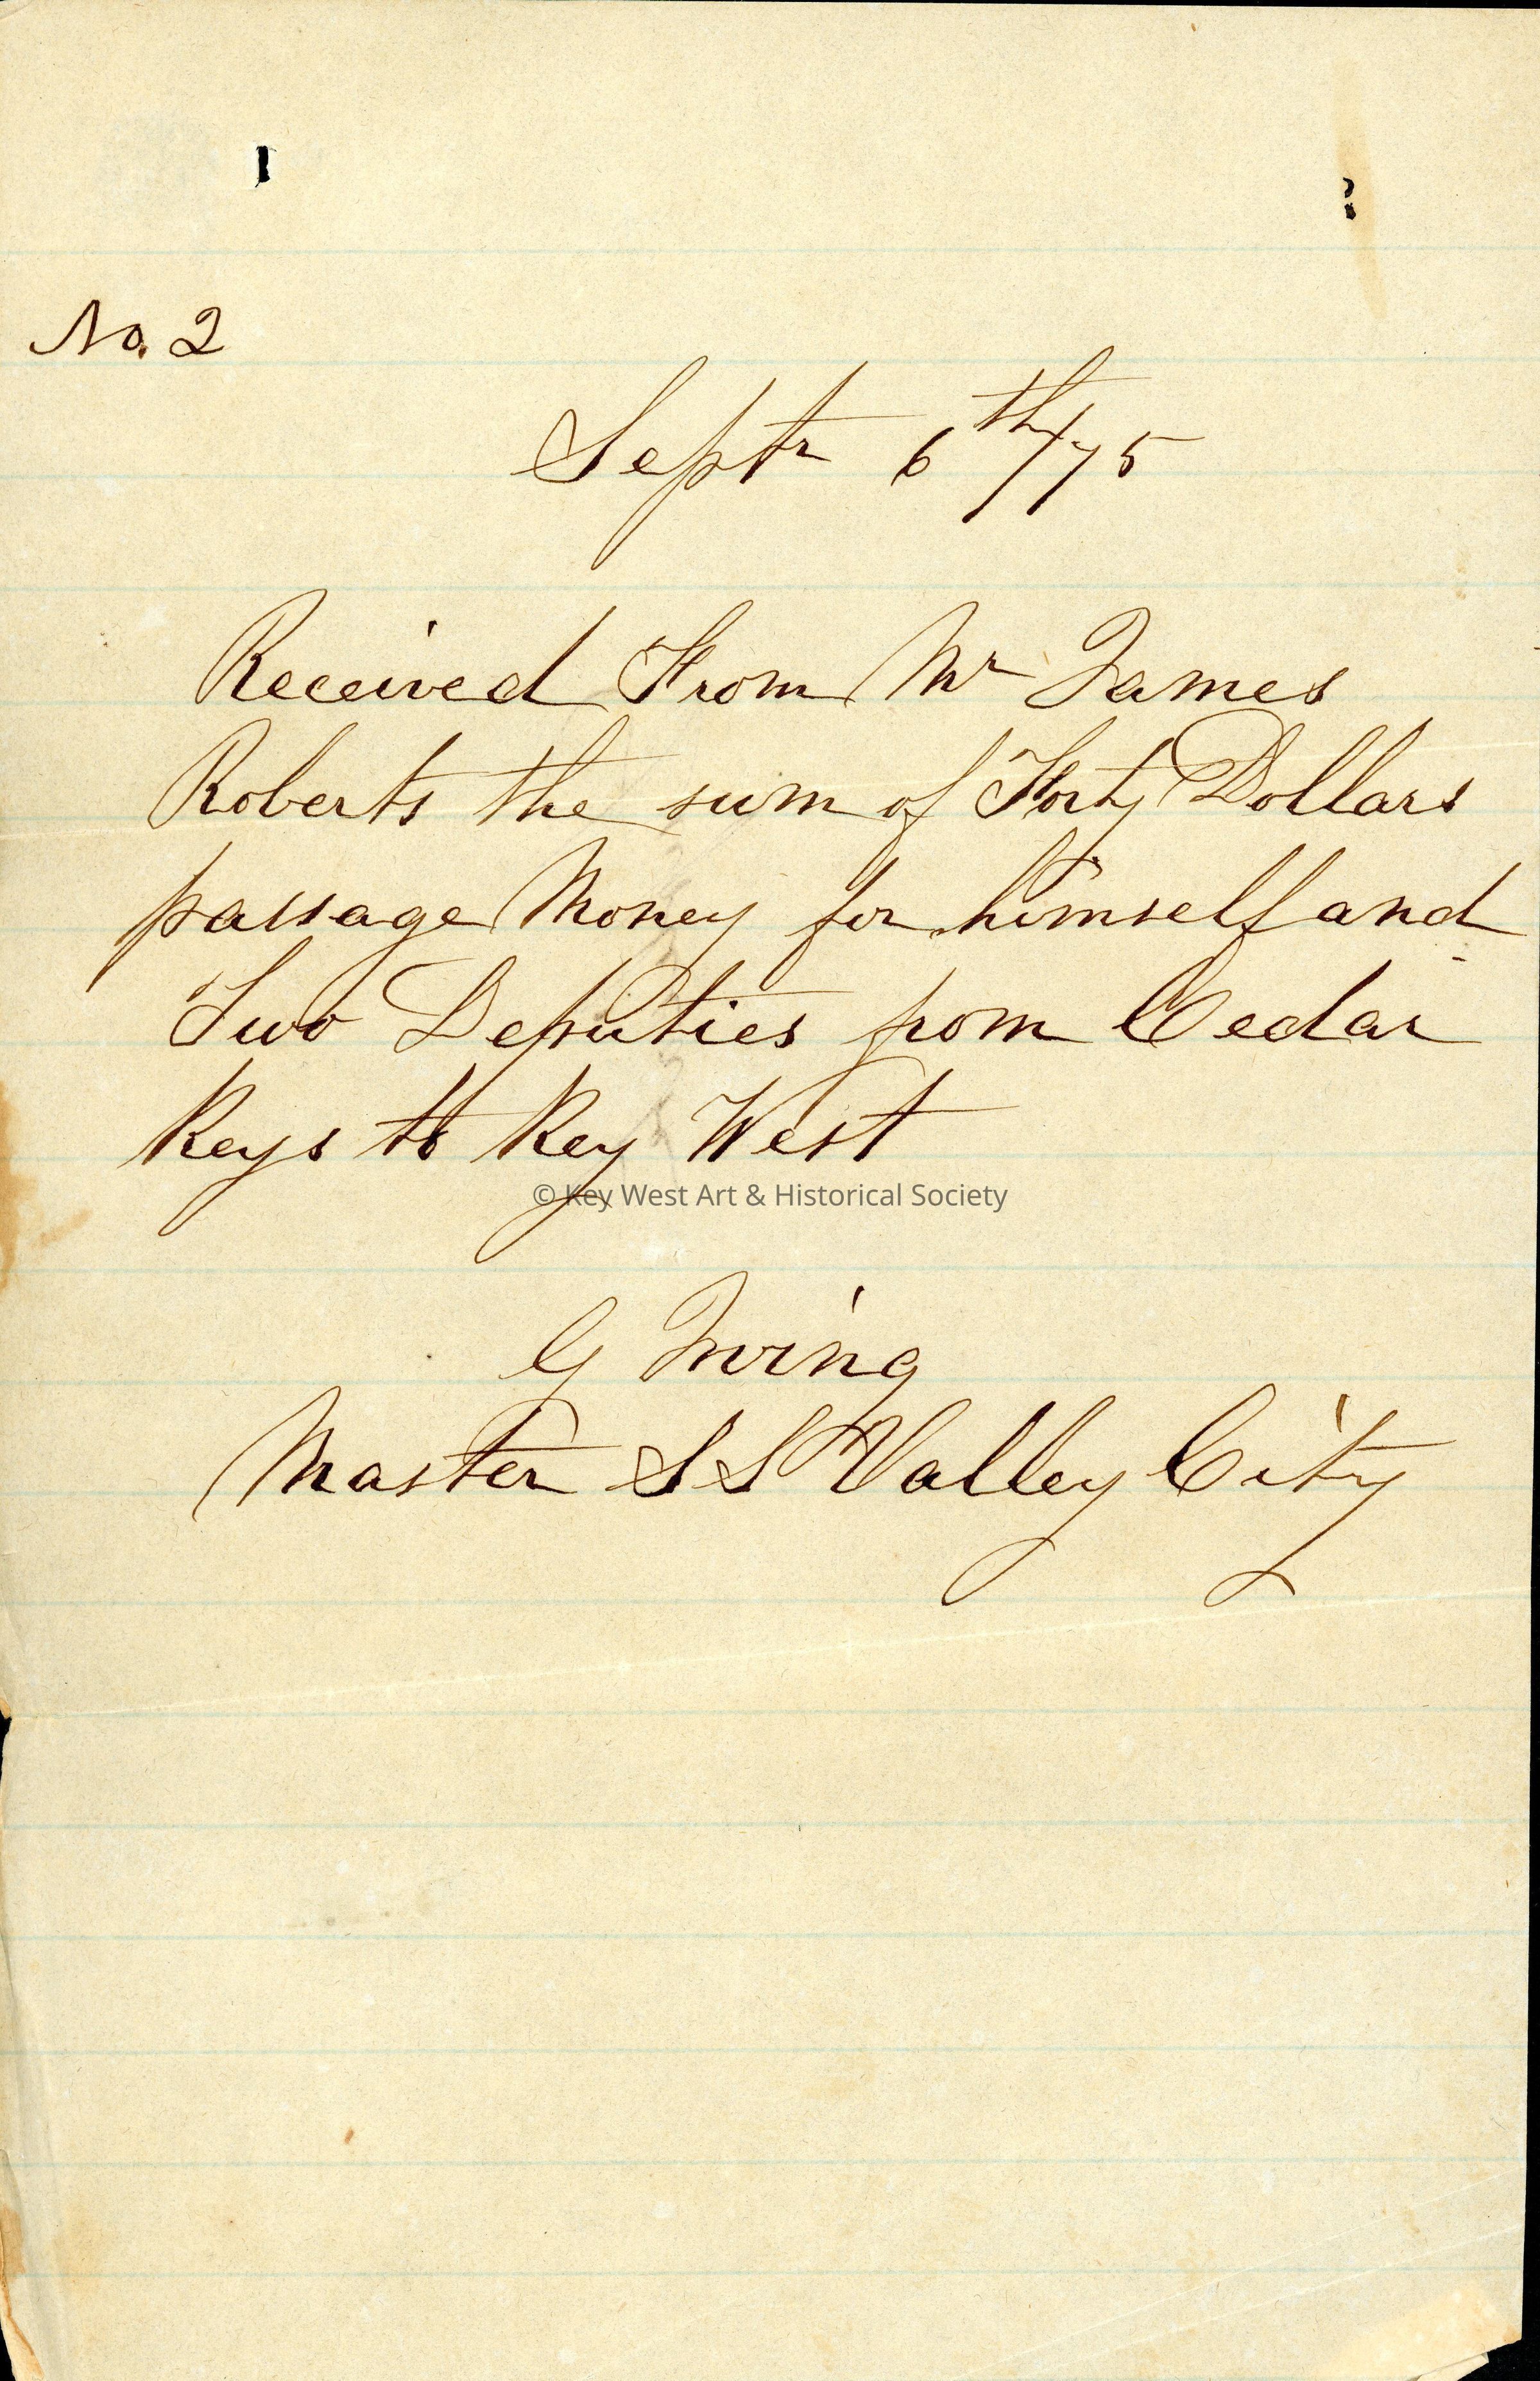 No. 2
Septr 6th/75
Received From Mr James
Roberts the sum of Forty Dollars
passage Money for himself and
Two Deputies from Cedar
Keys to Key West
© Key West Art & Historical Society
G Irving
Master SS Valley City